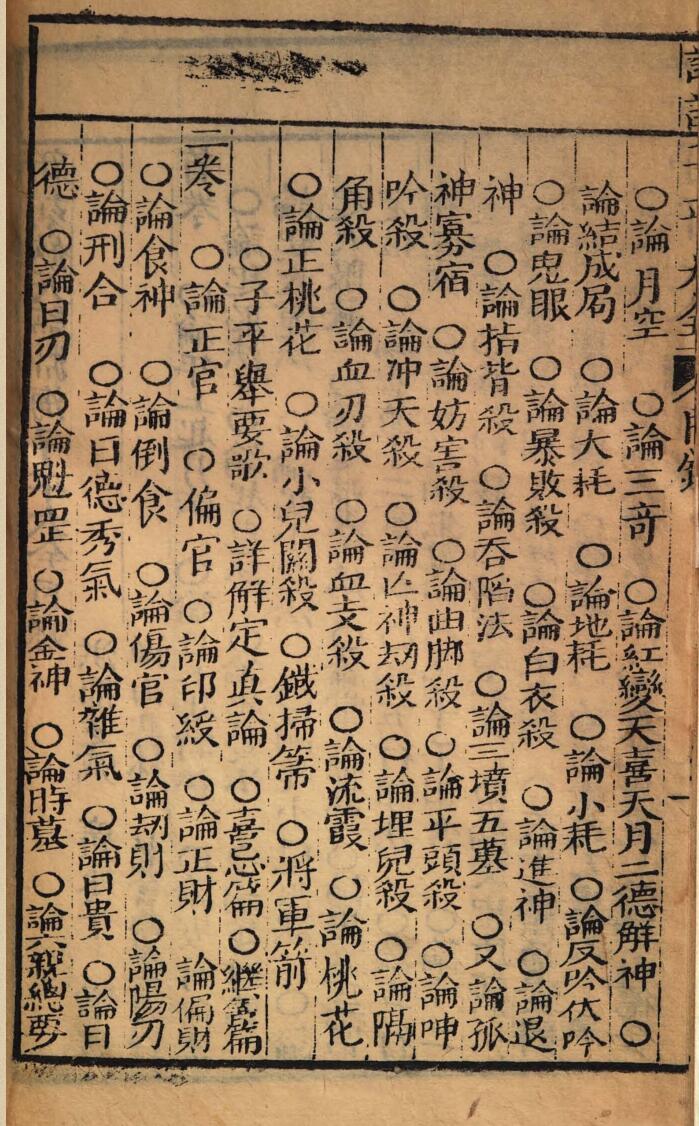 ○論月空　○論三奇　○論紅變天喜天月二德解神　○
論結成局　○論大耗　○論地耗　○論小耗　○論反吟伏吟
○論鬼眼　○論暴敗殺　○論白衣殺　○論進神　○論退
神　○論指背殺　○論吞陷法　○論三墳五墓　○又論孤
神寡宿　○論妨害殺　○論曲脚殺　○論平頭殺　○論呻
吟殺　○論冲天殺　○論亡神刼殺　○論埋兒殺　○論隔
角殺　○論血刃殺　○論血支殺　○論流霞　○論桃花
○論正桃花　○論小兒關殺　○鐵掃箒　○將軍箭
○子平舉要歌　○詳解定真論　○喜忌篇　○繼善篇
二卷　○論正官　○偏官　○論印綬　○論正財　論偏財
○論食神　○論倒食　○論傷官　○論刼財　○論陽刃
○論刑合　○論日德秀氣　○論雜氣　○論日貴　○論日
德　○論日刃　○論魁罡　○論金神　○論時墓　○論六親總要